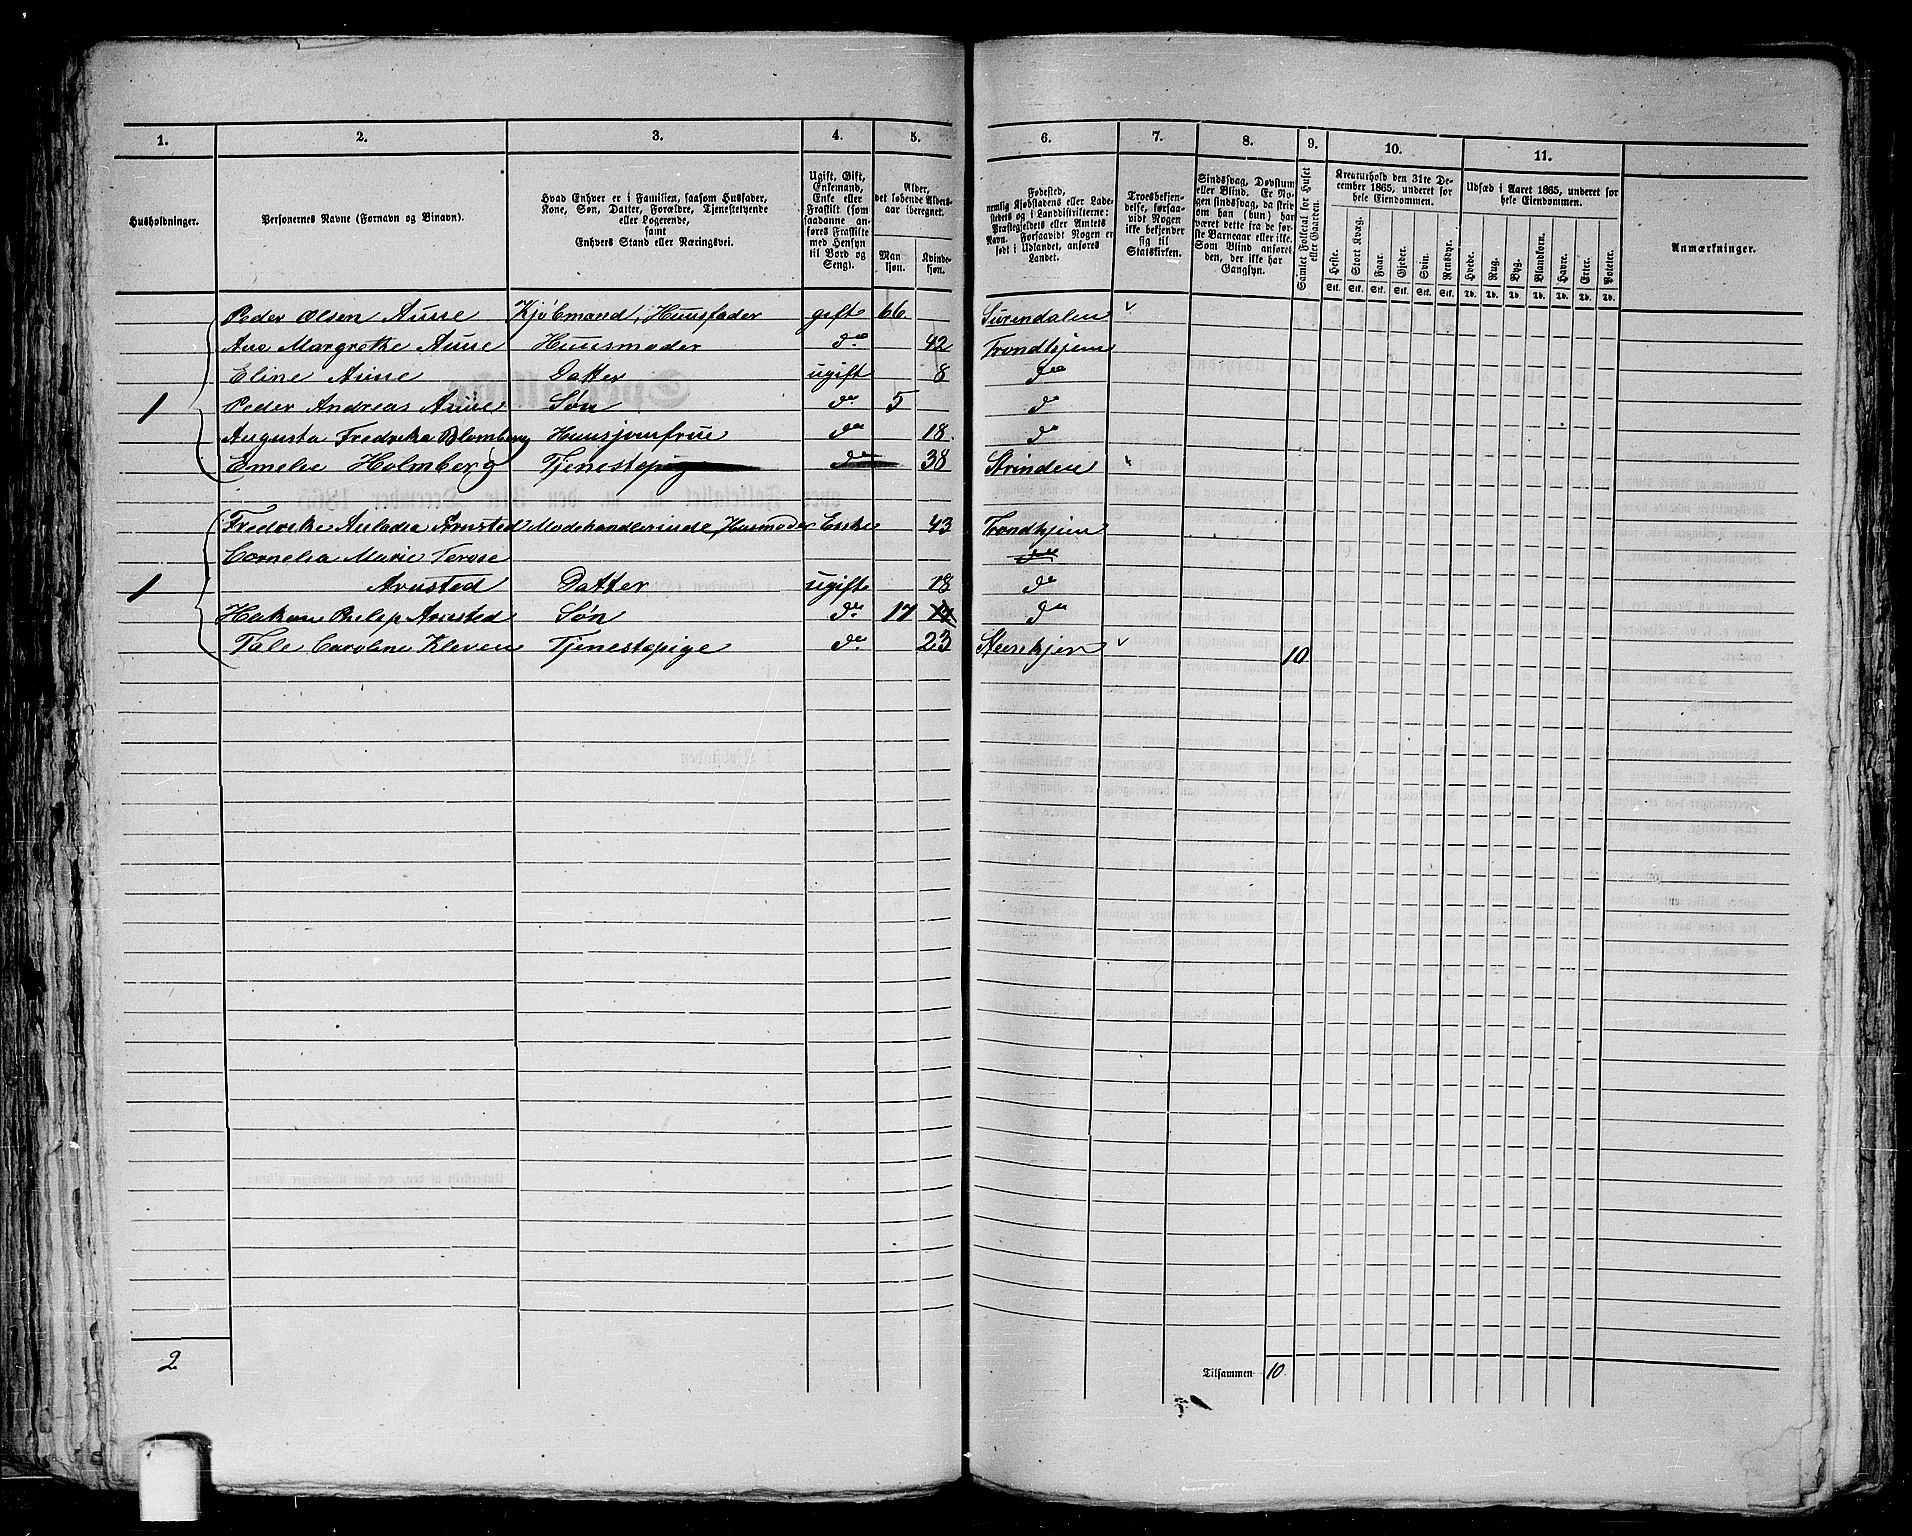 1. 2. 3. 4. 5. 6. 7. 8. 9. 10. 11.
Husholdninger.
Personernes Navne (Fornavn og Binavn).
Hvad Enhver er i Familien, saasom Husfader,
Kone, Søn, Datter, Forældre, Tjenestetyende
eller Logerende,
samt
Enhvers Stand eller Næringsvei.
Ugift, Gift,
Enkemand,
Enke eller
Fraskilt (som
saadanne an-
føres Fraskilte
med Hensyn
til Bord og
Seng).
Alder,
det løbende Alders-
aar iberegnet.
Man
kjøn.
Kvinde-
kjøn.
Fødested,
nemlig Kjøbstadens eller Lade-
stedets og i Landdistrikterne:
Præstegjeldets eller Amtets
Navn. Forsaavidt Nogen er
født i Udlandet, anføres
Landet.
Troesbekjen-
delse, forsaa-
vidt Nogen
ikke bekjender
sig til
Statskirken.
Sindssvag, Døvstum
eller Blind. Er No-
gen sindssvag, da skriv
om han (hun) har
været dette fra de før-
ste Barneaar eller ikke.
Som Blind anføres
den, der ikke har
Gangsyn.
Samlet Folketal for Huset
eller Gaarden.
Kreaturhold den 31te De-
cember 1865, underet for
hele Eiendommen.
Heste. Stort Kvæg. Faar. Gjeder. Svin. Rensdyr.
Stk. Stk. Stk. Stk. Stk. Stk.
Udsæd i Aaret 1865, underet for
hele Eiendommen.
Hvede. Rug. Byg. Blandkorn. Havre. Erter. Poteter.
Td. Td. Td. Td. Td. Td. Td.
Anmærkninger.
Peder Olsen Aune Kjøbmand, Huusfader gift 66 Surendalen
Ane Margrethe Aune Huusmoder do 42 Trondhjem
Eline Aune Datter ugift 8 do
1 Peder Andreas Aune Søn do 5 do
Augusta Fredrika Blomberg Huusjomfrue do 18 do
Emelie Holmberg Tjenestepige do 38 Strinden
Fredrikke Modehandlerinde, Husmoder Enke 43 Trondhjem
Cornelia Marie do
1 Arnsted Datter ugift 18 do
Hakon Philip Arnsted Søn do 17 do
Tale Caroline Kleven Tjenestepige do 23 10
2
Tilsammen 10